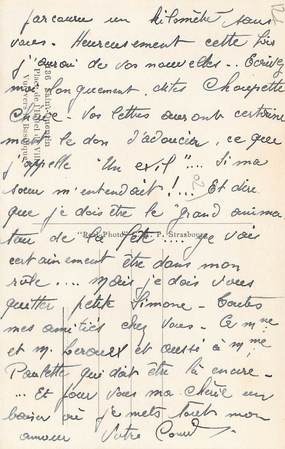 parcourir un kilomètre sans
vous - Heureusement cette fois
j'aurai de vos nouvelles - Ecrivez
moi longuement, dites Choupette
Chérie - Vos lettres auront certaine
ment le don d'adoucir, ce que
j'appelle "Un exil"... Si ma
sœur m'entendait !... Et dire
que je dois être le "grand anima
teur de la fête"... je vais
certainement être dans mon
rôle... Mais je dois vous
quitter petite Simone - Toutes
mes amitiés chez vous - A Mme
et M. Leroux et aussi à Mme
Paulette qui doit être là encore -
... Et pour vous ma Chérie un
baiser où je mets tout mon
amour Votre
36 Saint-Quentin
Place de l'Hôtel de Ville
Vue vers la Basilique
"Real-Photo" P. Strasbourg